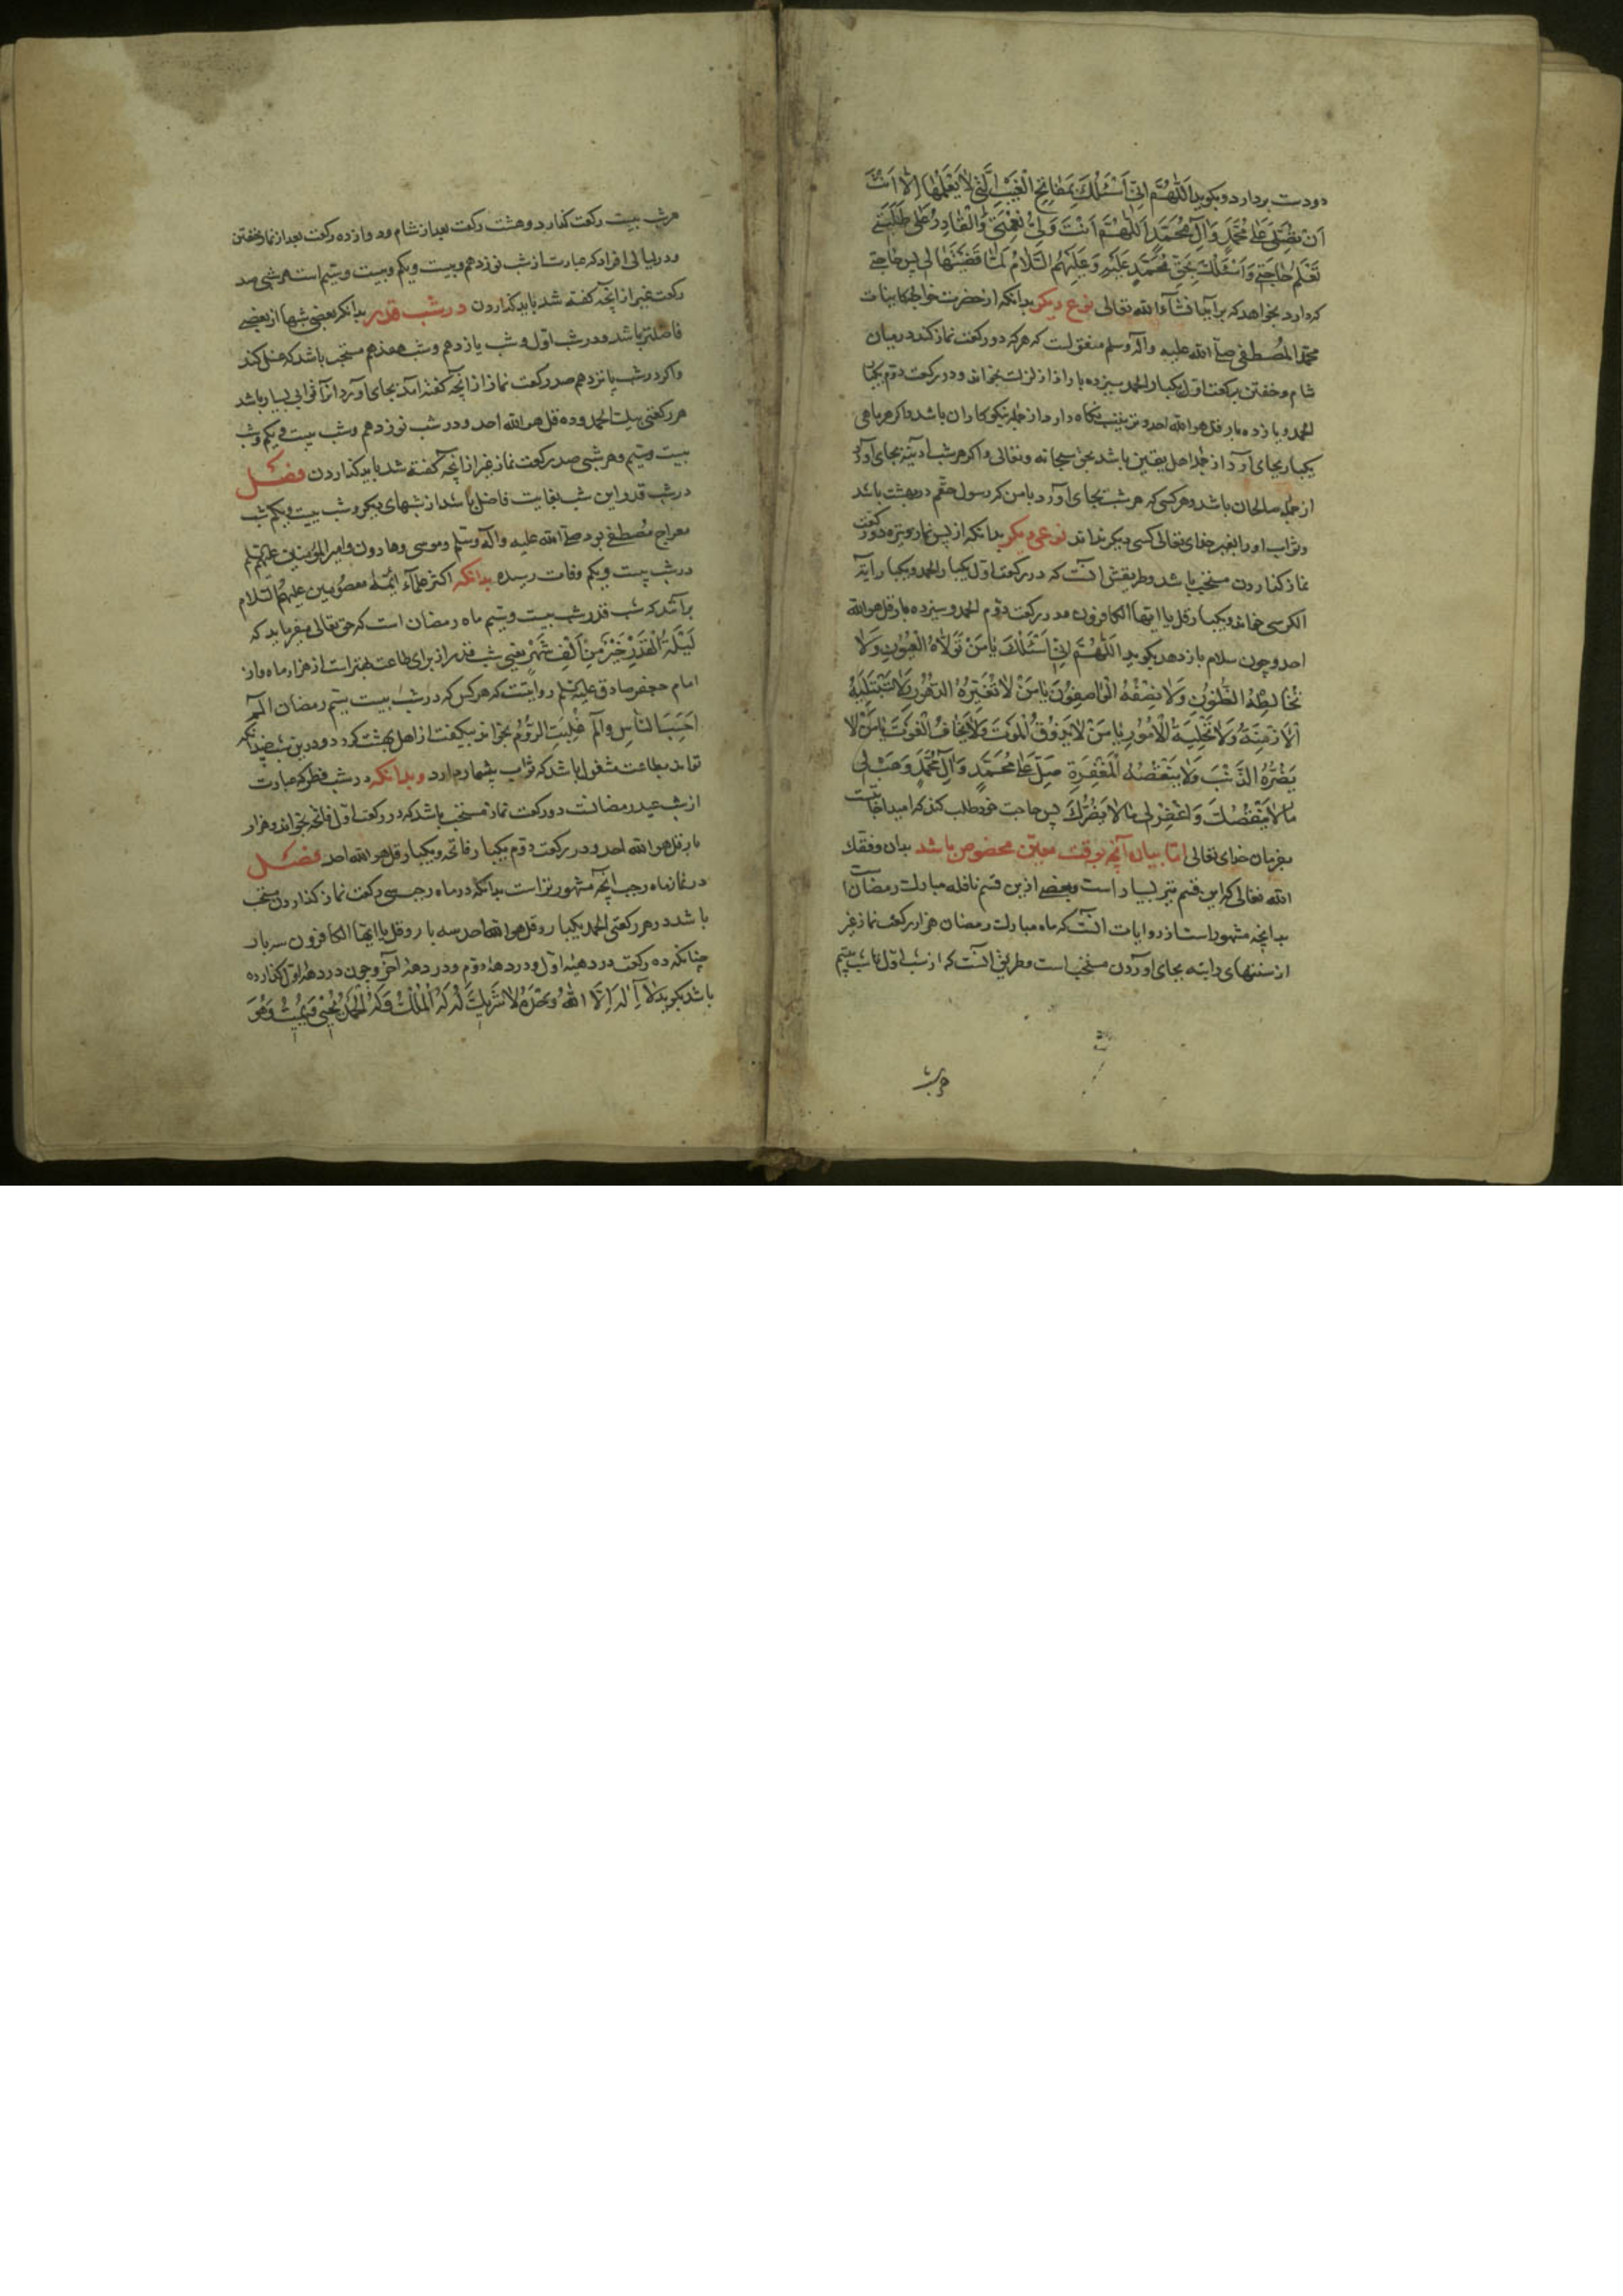 دو دست بردارد و بکوید اَللّٰهُمَّ اِنّی اَسْئَلُكَ بِمَفٰاتِحِ الْغَیْبِ الَّتی لٰا یَعْلَمُهٰا اِلّٰا اَنْتَ
اَنْ تُصَلِّیَ عَلیٰ مُحَمَّدٍ وَآلِ مُحَمَّدٍ اَللّٰهُمَّ اَنْتَ وَلِیُّ نِعْمَتی وَالْقٰادِرُ عَلیٰ طَلِبَتی
تَعْلَمُ حٰاجَتی وَ اَسْئَلُكَ بِحَقِّ مُحَمَّدٍ عَلَیْهِ وَ عَلَیْهِمُ السَّلٰامُ لَمّٰا قَضَیْتَهٰا لی پس حاجتی
که دارد بخواهد که برآید انشآء الله تعالی نوع دیکر بدانکه از حضرت خواجه کاینات
محمد المصطفی صلی الله علیه وآله وسلم منقولست که هرکه دو رکعت نماز کند در میان
شام و خفتن برکعت اول یکبار الحمد و سیزده بار اذا زلزلت بخواند و در رکعت دوم یکبار
الحمد و پازده بار قل هو الله احد و ترتیب نکاه دارد از جمله نیکوکاران باشد و اکر هر ماهی
یکبار بجای آرد از جمله اهل یقین باشد بحق سبحانه و تعالی و اکر هر شب آدینه بجای آورد
از جمله صالحان باشد و هرکسی که هر شب بجای آورد با من که رسول حقم در بهشت باشد
و ثواب او را بغیر خدای تعالی کسی دیکر نداند نوعی دیکر بدانکه از پس نماز وتیره دو رکعت
نماز کذاردن مستحب باشد و طریقش آنست که در رکعت اول یکبار الحمد و یکبار آیة
الکرسی خواند و یکبار قل یا ایها الکافرون و در رکعت دوم الحمد و سیزده بار قل هو الله
احد و چون سلام بازدهد بکوید اَللّٰهُمَّ اِنّی اَسْئَلُكَ یٰا مَنْ لٰا تَرٰاهُ الْعُیُونُ وَلٰا
تُخٰالِطُهُ الظُّنُونُ وَلٰا یَصِفُهُ الْوٰاصِفُونَ یٰا مَنْ لٰا تُغَیِّرُهُ الدُّهُورُ وَلٰا تُبْلِیهِ
الْاَزْمِنَةُ وَلٰا تُحیلُهُ الْاُمُورُ یٰا مَنْ لٰا یَذُوقُ الْمَوْتَ وَلٰا یَخٰافُ الْفَوْتَ یٰا مَنْ لٰا
یَضُرُّهُ الذَّنْبُ وَلٰا یَنْقُصُهُ الْمَغْفِرَةُ صَلِّ عَلیٰ مُحَمَّدٍ وَآلِ مُحَمَّدٍ وَهَبْ لی
مٰا لٰا یَنْقُصُكَ وَاغْفِرْ لی مٰا لٰا یَضُرُّكَ پس حاجت خود طلب کند که امید اجابتست
بفرمان خدای تعالی اما بیان آنچه بوقت معین مخصوص باشد بدان وفقك
الله تعالی که این قسم نیز بسیار است و بعضی ازین قسم نافله مبارك رمضان است
بدانچه مشهور است از روایات آنست که ماه مبارك رمضان هزار رکعت نماز غیر
از سنتهای راتبه بجای آوردن مستحب است و طریقش آنست که از شب اول تا شب بیستم
هر شب
هر شب بیست رکعت کذارد و هشت رکعت بعد از شام و دوازده رکعت بعد از نماز خفتن
و در لیالی افراد که عبارت از شب نوزدهم و بیست ویکم و بیست وسیّم است هر شبی صد
رکعت غیر از آنچه کفته شد باید کذاردن در شب قدر بدانکه بعضی شبها از بعضی
فاضلتر باشد و در شب اول و شب پازدهم و شب هفدهم مستحب باشد که غسل کند
و اکر در شب پانزدهم صد رکعت نماز از آنچه کفته آمد بجای آورد آنرا ثوابی بسیار باشد
هر رکعتی بیك الحمد و ده قل هو الله احد و در شب نوزدهم و شب بیست ویکم و شب
بیست وسیّم و هر شبی صد رکعت نماز غیر از آنچه کفته شد باید کذاردن فصل
در شب قدر و این شب بغایت فاضل باشد از شبهای دیکر و شب بیست ویکم شب
معراج مصطفی بود صلی الله علیه وآله وسلم و موسی و هارون و امیر المؤمنین علیهم السلم
در شب بیست ویکم وفات رسیده بدانکه اکثر علمآء ائمّۀ معصومین علیهم السلام
برآنند که شب قدر شب بیست وسیّم ماه رمضان است که حق تعالی میفرماید که
لَیْلَةُ الْقَدْرِ خَیْرٌ مِنْ اَلْفِ شَهْرٍ یعنی شب قدر از برای طاعت بهتر است از هزار ماه و از
امام جعفر صادق علیه السلم روایتست که هرکس که در شب بیست سیّم رمضان الٓمٓ
اَحَسِبَ النّٰاسُ والٓمٓ غُلِبَتِ الرُّومُ بخواند بیکفت از اهل بهشت کردد و درین شب چندانکه
تواند بطاعت مشغول باشد که ثواب بیشمار دارد و بدانکه در شب فطر که عبارت
از شب عید رمضانست دو رکعت نماز مستحب باشد که در رکعت اول فاتحه بخواند و هزار
بار قل هو الله احد و در رکعت دوم یکبار فاتحه و یکبار قل هو الله احد فصل
در نماز ماه رجب آنچه مشهورتر است بدانکه در ماه رجب سی رکعت نماز کذاردن مستحب
باشد در هر رکعتی الحمد یکبار و قل هو الله احد سه بار و قل یا ایها الکافرون سه بار
چنانکه ده رکعت در دهۀ اول و در دهۀ دوم و در دهۀ آخر و چون در دهۀ اول کذارده
باشد بکوید لٰا اِلٰهَ اِلَّا اللهُ وَحْدَهُ لٰا شَرِیكَ لَهُ لَهُ الْمُلْكُ وَلَهُ الْحَمْدُ یُحْیی وَیُمیتُ وَهُوَ